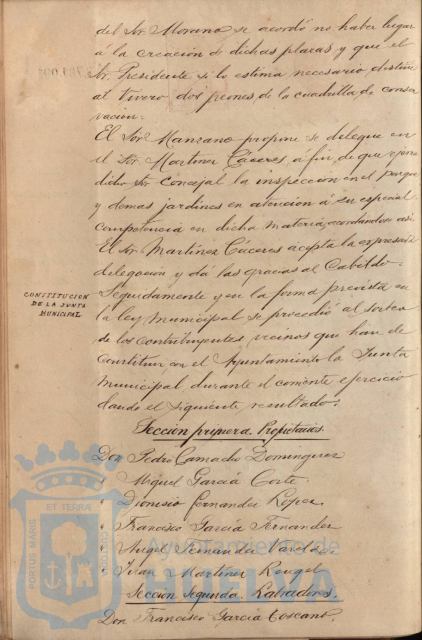 del Sor. Moreno se acordó no haber lugar
á la creacion de dichas plazas y que el
Sr. Presidente si lo estima necesario, destine
al Vivero dos peones de la cuadrilla de conser
vación.
El Sor. Manzano propone se delegue en
el Sor. Martinez Cáceres, á fin de que ejerza
dicho Sr. Concejal la inspección en el parque
y demas jardines en atención á su especial
competencia en dicha materia, acordandose asi.
El Sr. Martínez Cáceres acepta la expresada
delegación y dá las gracias al Cabildo.
CONSTITUCION
DE LA JUNTA
MUNICIPAL
Seguidamente y en la forma prevista en
la ley Municipal se procedió al sorteo
de los contribuyentes vecinos que han de
Constituir con el Ayuntamiento la Junta
Municipal durante el corriente ejercicio
dando el siguiente resultado:
Sección primera. Propietarios.
Don Pedro Camacho Dominguez
" Miguel García Corte
" Dionisio Fernandez López
" Francisco García Fernandez
" Angel Fernandez Varela
" Juan Martínez Rengel
Sección Segunda. Labradores.
Don Francisco García Toscano.
PORTUS MARIS ET TERRÆ CUSTODIA
Ayuntamiento de
HUELVA